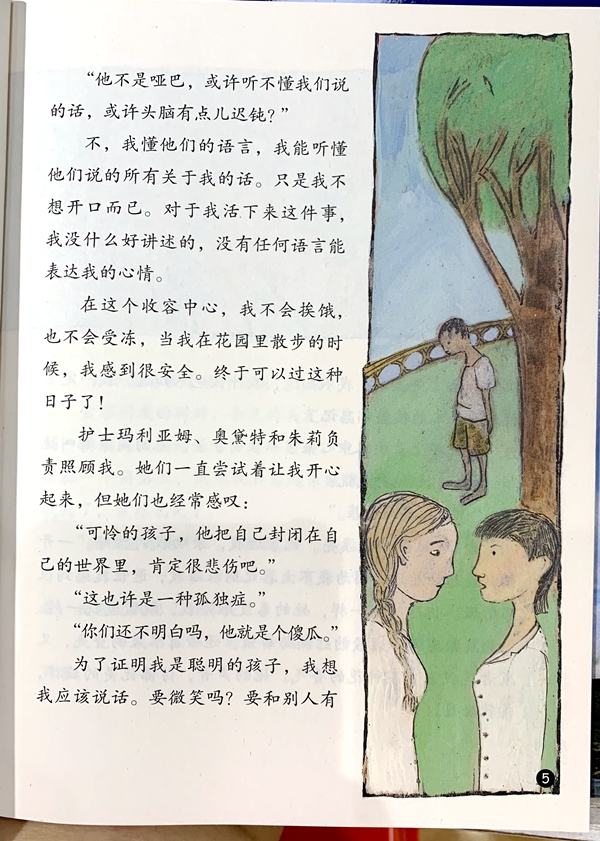 “他不是哑巴，或许听不懂我们说
的话，或许头脑有点儿迟钝？”
不，我懂他们的语言，我能听懂
他们说的所有关于我的话。只是我不
想开口而已。对于我活下来这件事，
我没什么好讲述的，没有任何语言能
表达我的心情。
在这个收容中心，我不会挨饿，
也不会受冻，当我在花园里散步的时
候，我感到很安全。终于可以过这种
日子了！
护士玛利亚姆、奥黛特和朱莉负
责照顾我。她们一直尝试着让我开心
起来，但她们也经常感叹：
“可怜的孩子，他把自己封闭在自
己的世界里，肯定很悲伤吧。”
“这也许是一种孤独症。”
“你们还不明白吗，他就是个傻瓜。”
为了证明我是聪明的孩子，我想
我应该说话。要微笑吗？要和别人有
5